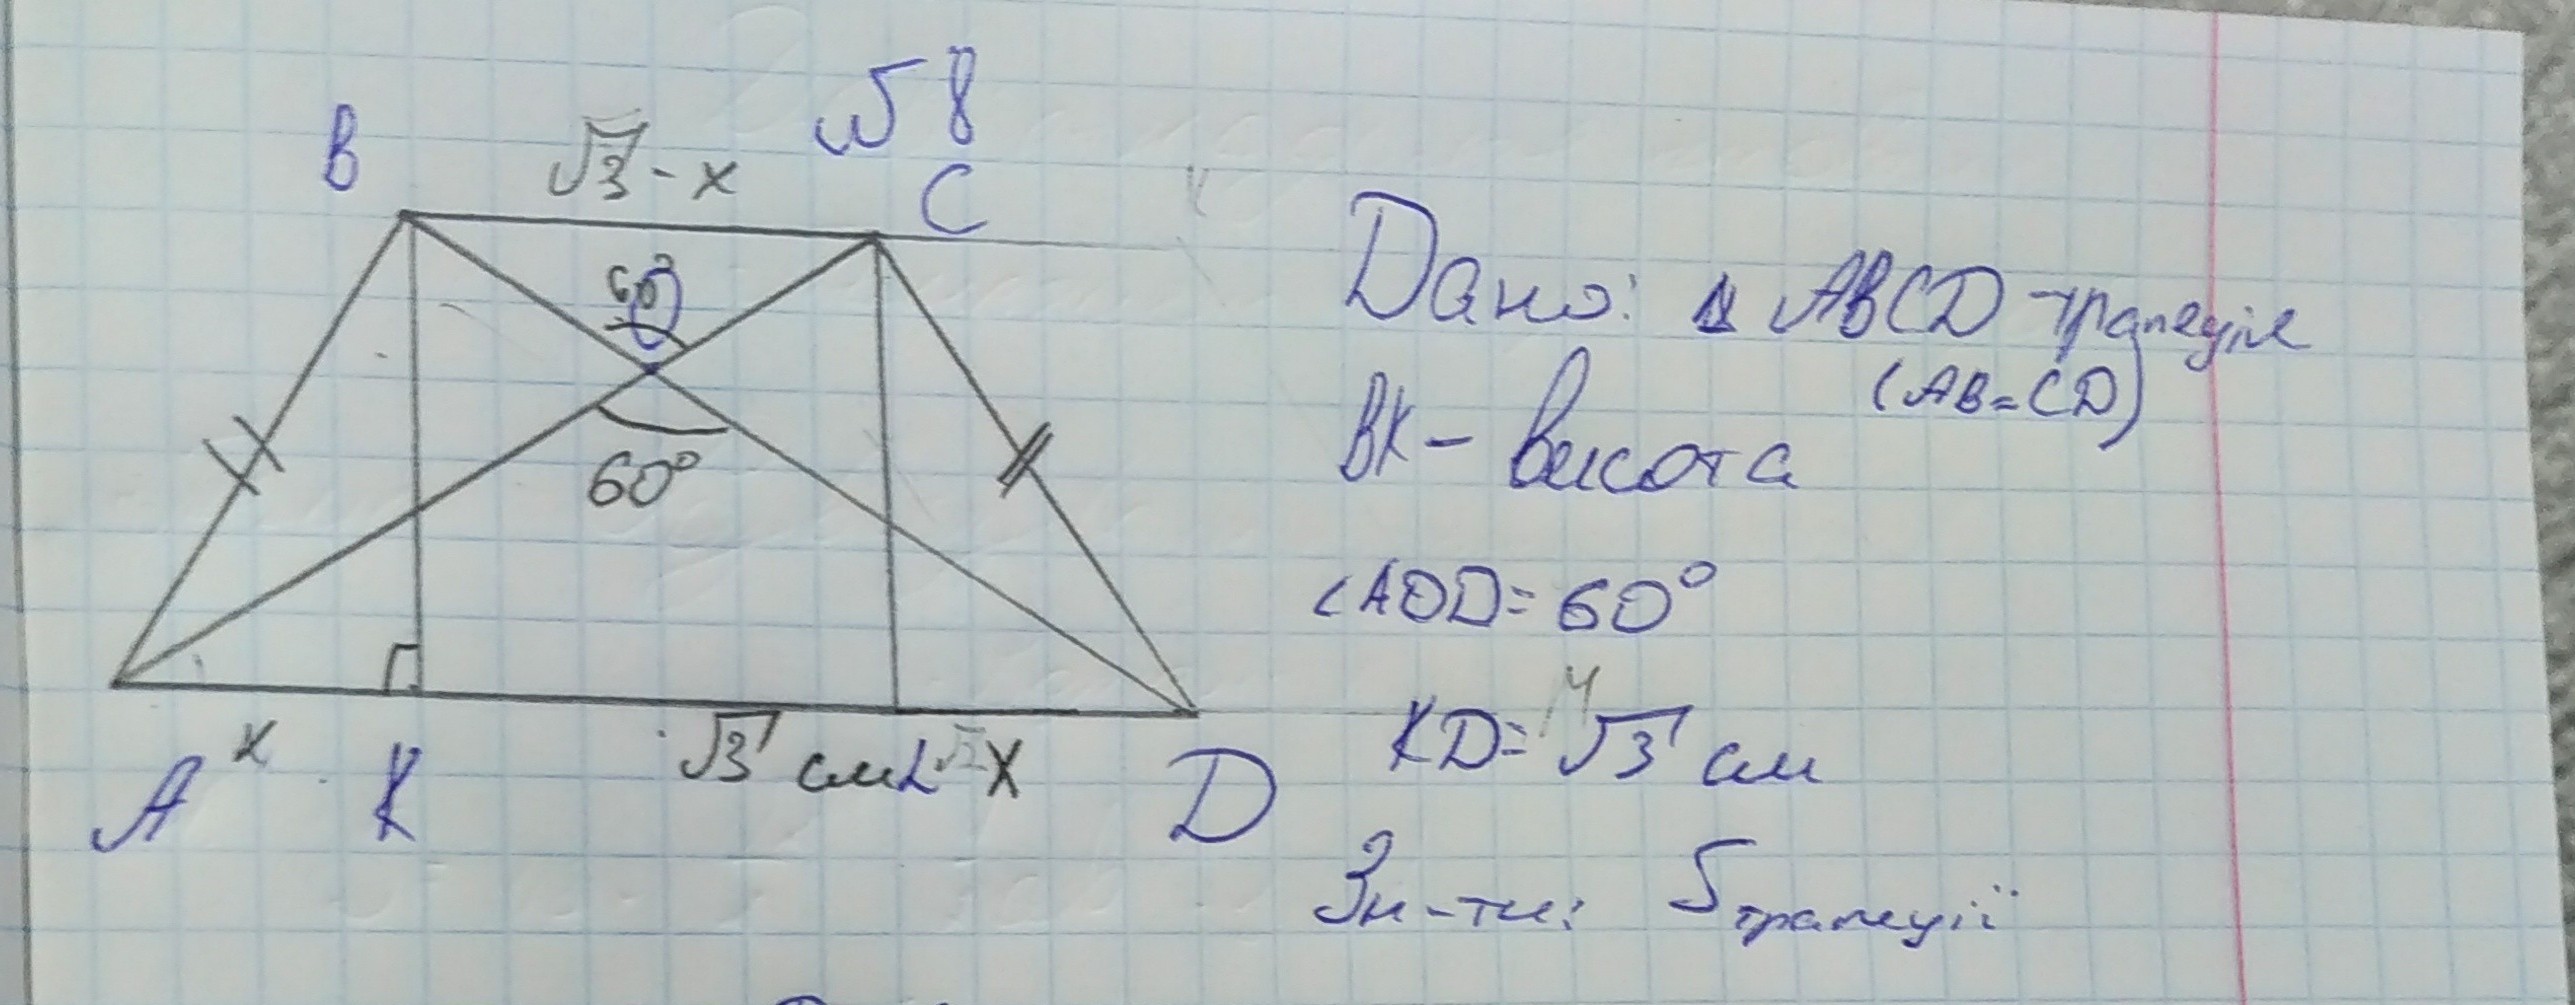 №8
B √3 - x C
60°
O
60°
A x K √3 см L x D
Дано: ABCD трапеція
(AB=CD)
BK - висота
∠AOD = 60°
KD = √3 см
Зн-ти: Sтрапеції